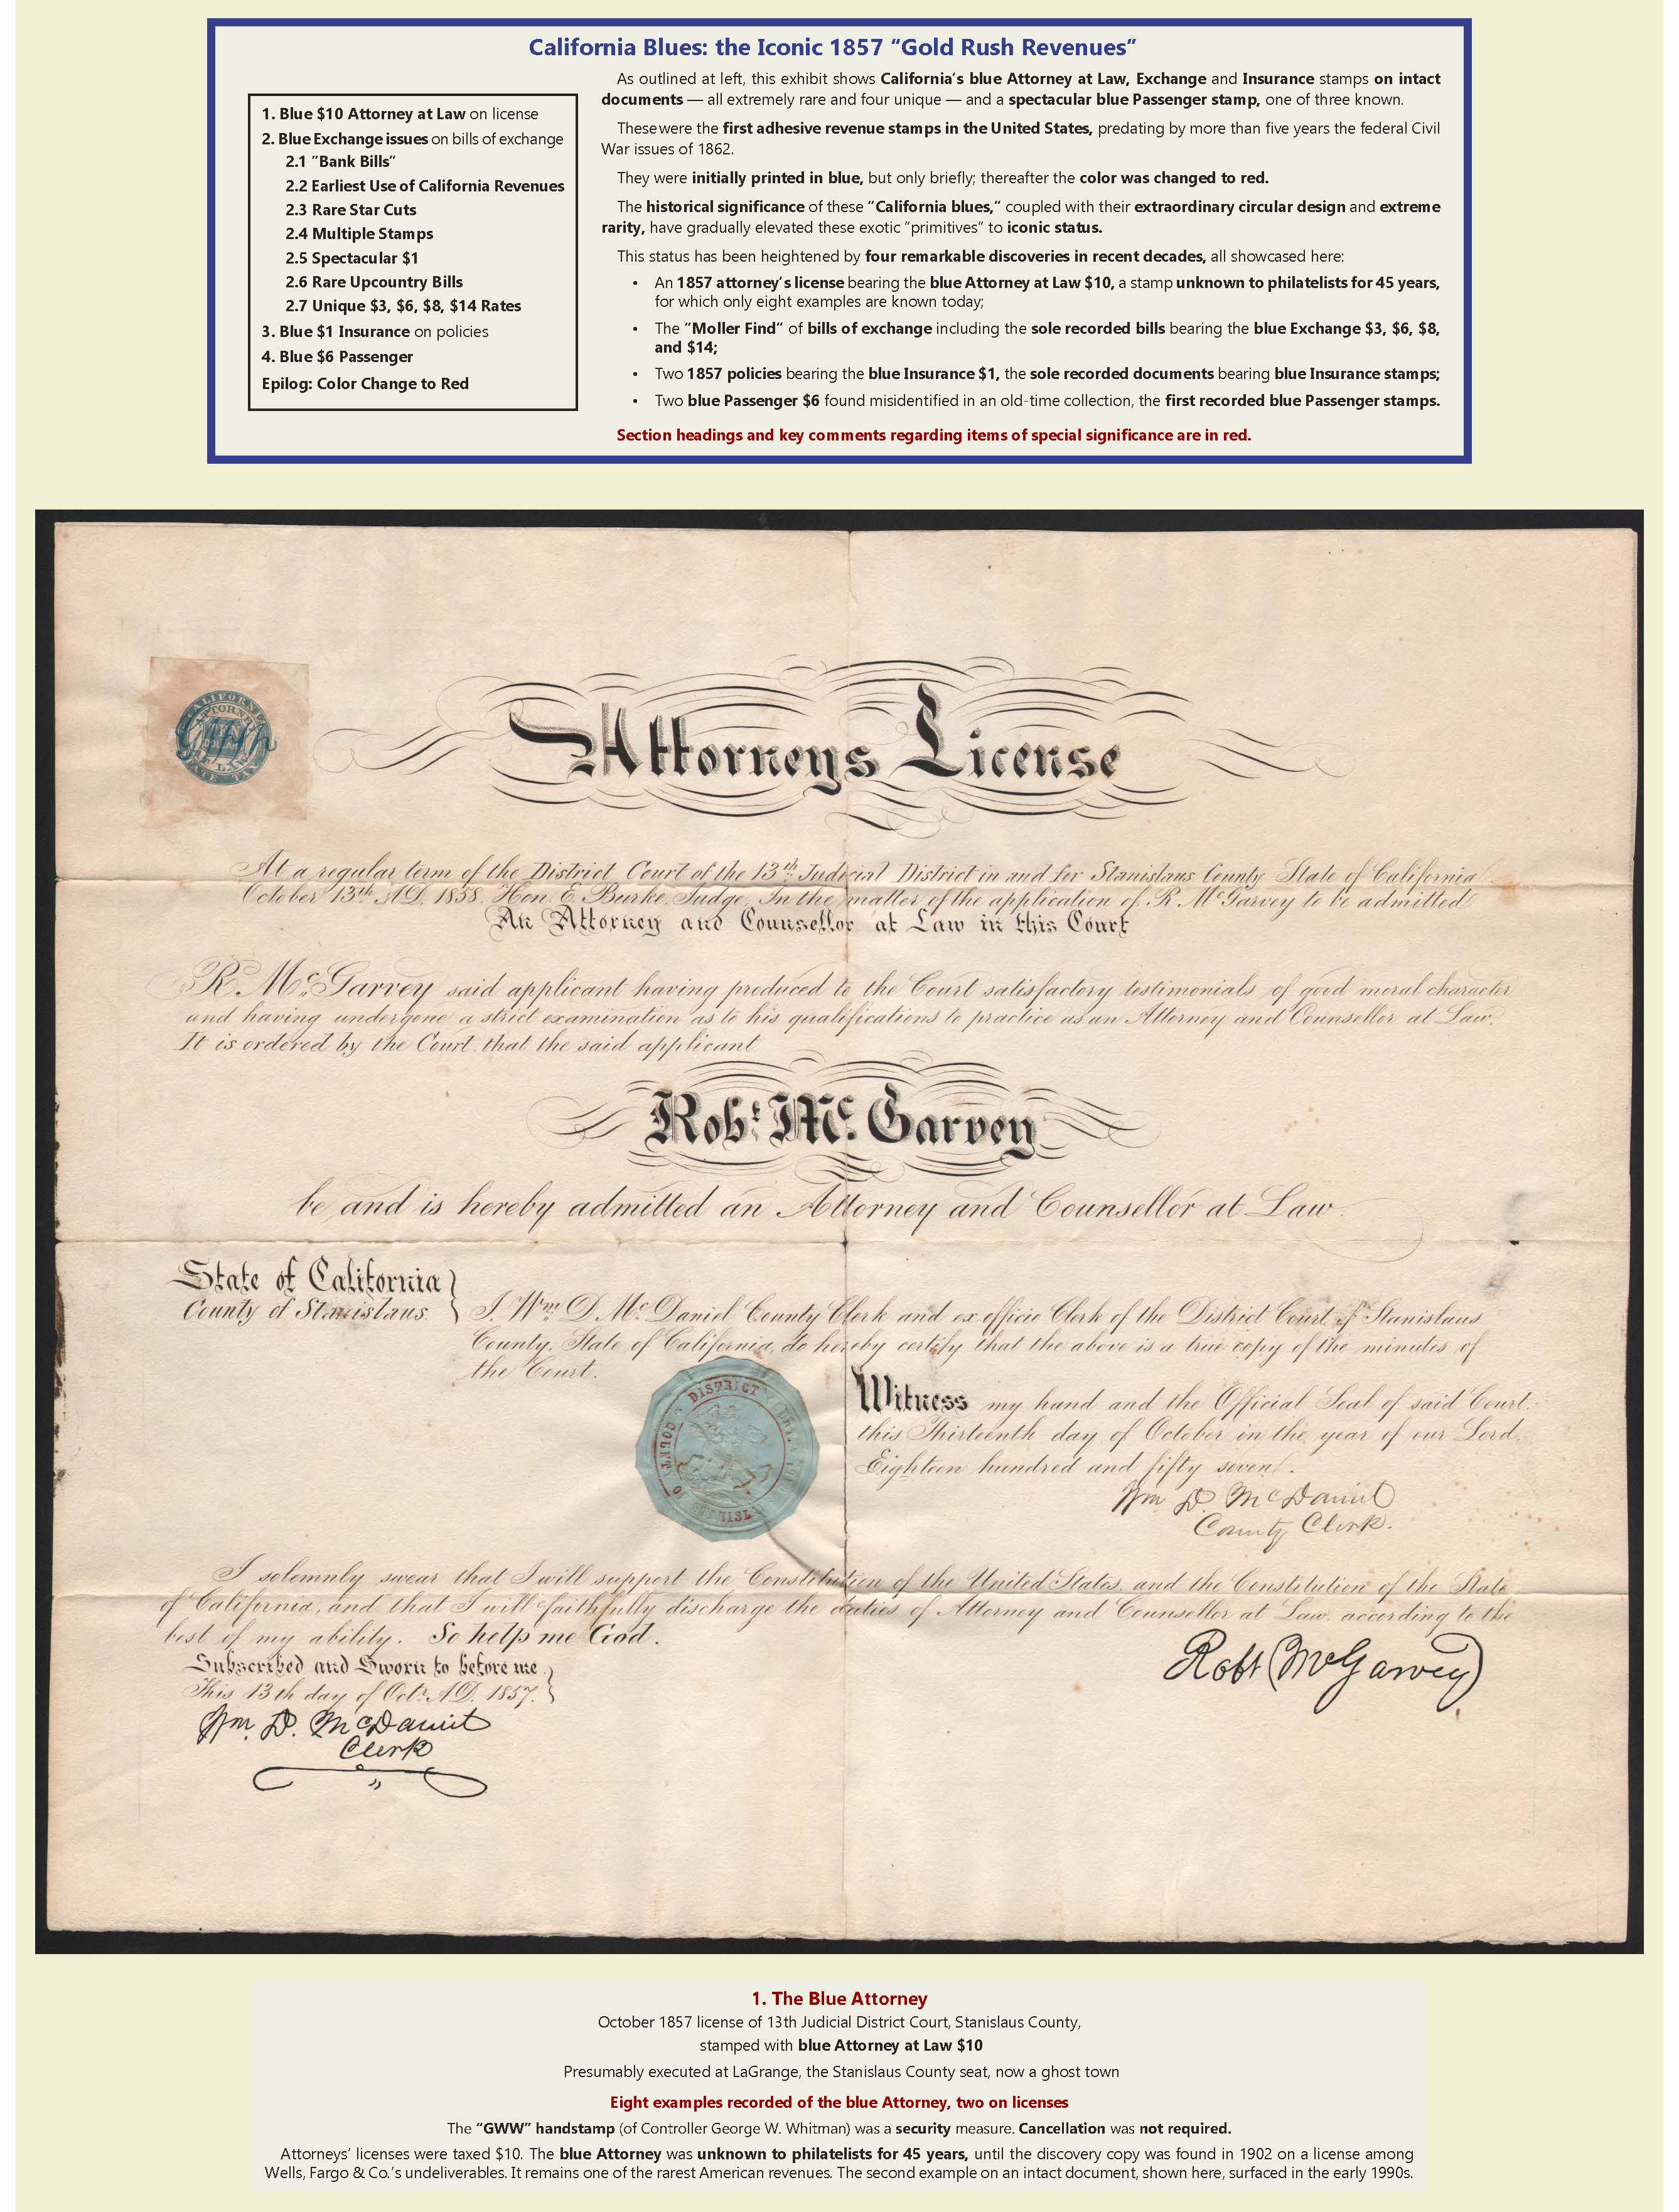 California Blues: the Iconic 1857 “Gold Rush Revenues”
1. Blue $10 Attorney at Law on license
2. Blue Exchange issues on bills of exchange
2.1 “Bank Bills”
2.2 Earliest Use of California Revenues
2.3 Rare Star Cuts
2.4 Multiple Stamps
2.5 Spectacular $1
2.6 Rare Upcountry Bills
2.7 Unique $3, $6, $8, $14 Rates
3. Blue $1 Insurance on policies
4. Blue $6 Passenger
Epilog: Color Change to Red
As outlined at left, this exhibit shows California’s blue Attorney at Law, Exchange and Insurance stamps on intact
documents — all extremely rare and four unique — and a spectacular blue Passenger stamp, one of three known.
These were the first adhesive revenue stamps in the United States, predating by more than five years the federal Civil
War issues of 1862.
They were initially printed in blue, but only briefly; thereafter the color was changed to red.
The historical significance of these “California blues,“ coupled with their extraordinary circular design and extreme
rarity, have gradually elevated these exotic “primitives” to iconic status.
This status has been heightened by four remarkable discoveries in recent decades, all showcased here:
• An 1857 attorney’s license bearing the blue Attorney at Law $10, a stamp unknown to philatelists for 45 years,
for which only eight examples are known today;
• The “Moller Find” of bills of exchange including the sole recorded bills bearing the blue Exchange $3, $6, $8,
and $14;
• Two 1857 policies bearing the blue Insurance $1, the sole recorded documents bearing blue Insurance stamps;
• Two blue Passenger $6 found misidentified in an old-time collection, the first recorded blue Passenger stamps.
Section headings and key comments regarding items of special significance are in red.
Attorneys License
At a regular term of the District Court of the 13th Judicial District in and for Stanislaus County State of California
October 13th A.D. 1858. Hon. E. Burke Judge. In the matter of the application of R. McGarvey to be admitted
An Attorney and Counsellor at Law in this Court
R. McGarvey said applicant having produced to the Court satisfactory testimonials of good moral character
and having undergone a strict examination as to his qualifications to practice as an Attorney and Counsellor at Law.
It is ordered by the Court that the said applicant
Robt. Mc. Garvey
be and is hereby admitted an Attorney and Counsellor at Law
State of California
County of Stanislaus
I. Wm D. McDaniel County Clerk and ex officio Clerk of the District Court of Stanislaus
County, State of California, do hereby certify that the above is a true copy of the minutes of
the Court.
DISTRICT
COUNTY
Witness my hand and the Official Seal of said Court.
this Thirteenth day of October in the year of our Lord.
Eighteen hundred and fifty seven.
Wm D. McDaniel
County Clerk.
I solemnly swear that I will support the Constitution of the United States, and the Constitution of the State
of California, and that I will faithfully discharge the duties of Attorney and Counsellor at Law, according to the
best of my ability. So help me God.
Subscribed and Sworn to before me
This 13th day of Oct. A.D. 1857.
Wm. D. McDaniel
Clerk
Robt McGarvey
1. The Blue Attorney
October 1857 license of 13th Judicial District Court, Stanislaus County,
stamped with blue Attorney at Law $10
Presumably executed at LaGrange, the Stanislaus County seat, now a ghost town
Eight examples recorded of the blue Attorney, two on licenses
The “GWW” handstamp (of Controller George W. Whitman) was a security measure. Cancellation was not required.
Attorneys’ licenses were taxed $10. The blue Attorney was unknown to philatelists for 45 years, until the discovery copy was found in 1902 on a license among
Wells, Fargo & Co.’s undeliverables. It remains one of the rarest American revenues. The second example on an intact document, shown here, surfaced in the early 1990s.